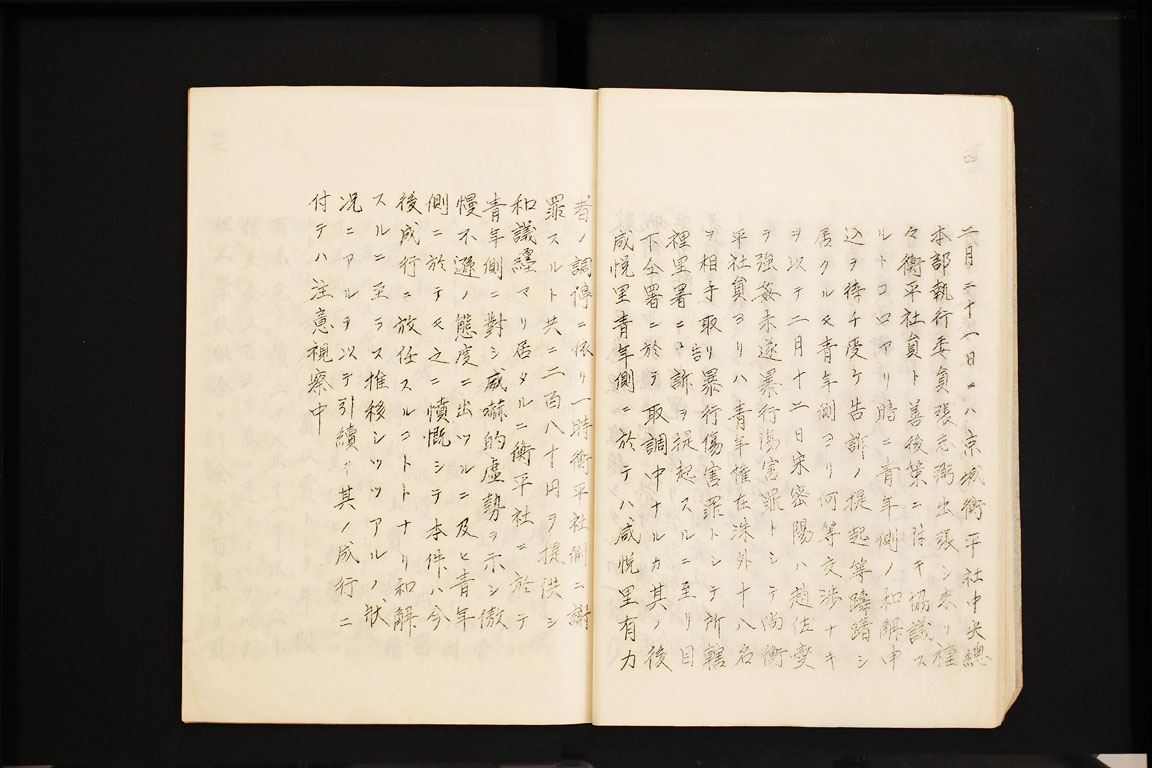 二月二十一日ニハ京城衡平社中央總
本部執行委員張志弼出張シ来リ種
々衡平社員ト善後策ニ付キ協議ス
ルトコロアリ時ニ青年側ノ和解申
込ヲ待チ受ケ告訴ノ提起等躊躇シ
居クルモ青年側ヨリ何等交渉ナキ
ヲ以テ二月十二日宋密陽ハ趙佐變
ヲ強姦未遂暴行傷害罪トシテ尚衡
平社員ヨリハ青年権在洙外十八名
ヲ相手取リ暴行傷害罪トシテ所轄
裡里署ニ告訴ヲ提起スルニ至リ目
下仝署ニ於テ取調中ナルカ其ノ後
咸悦里青年側ニ於テハ咸悦里有力
者ノ調停ニ依リ一時衡平社側ニ謝
罪スルト共ニ二百八十円ヲ提供シ
和議纒マリ居タルニ衡平社ニ於テ
青年側ニ對シ威嚇的虚勢ヲ示シ傲
慢不遜ノ態度ニ出ツルニ及ヒ青年
側ニ於テモ之ニ憤慨シテ本件ハ今
後成行ニ放任スルコトトナリ和解
スルニ至ラス推移シツツアルノ状
况ニアルヲ以テ引續キ其ノ成行ニ
付テハ注意視察中